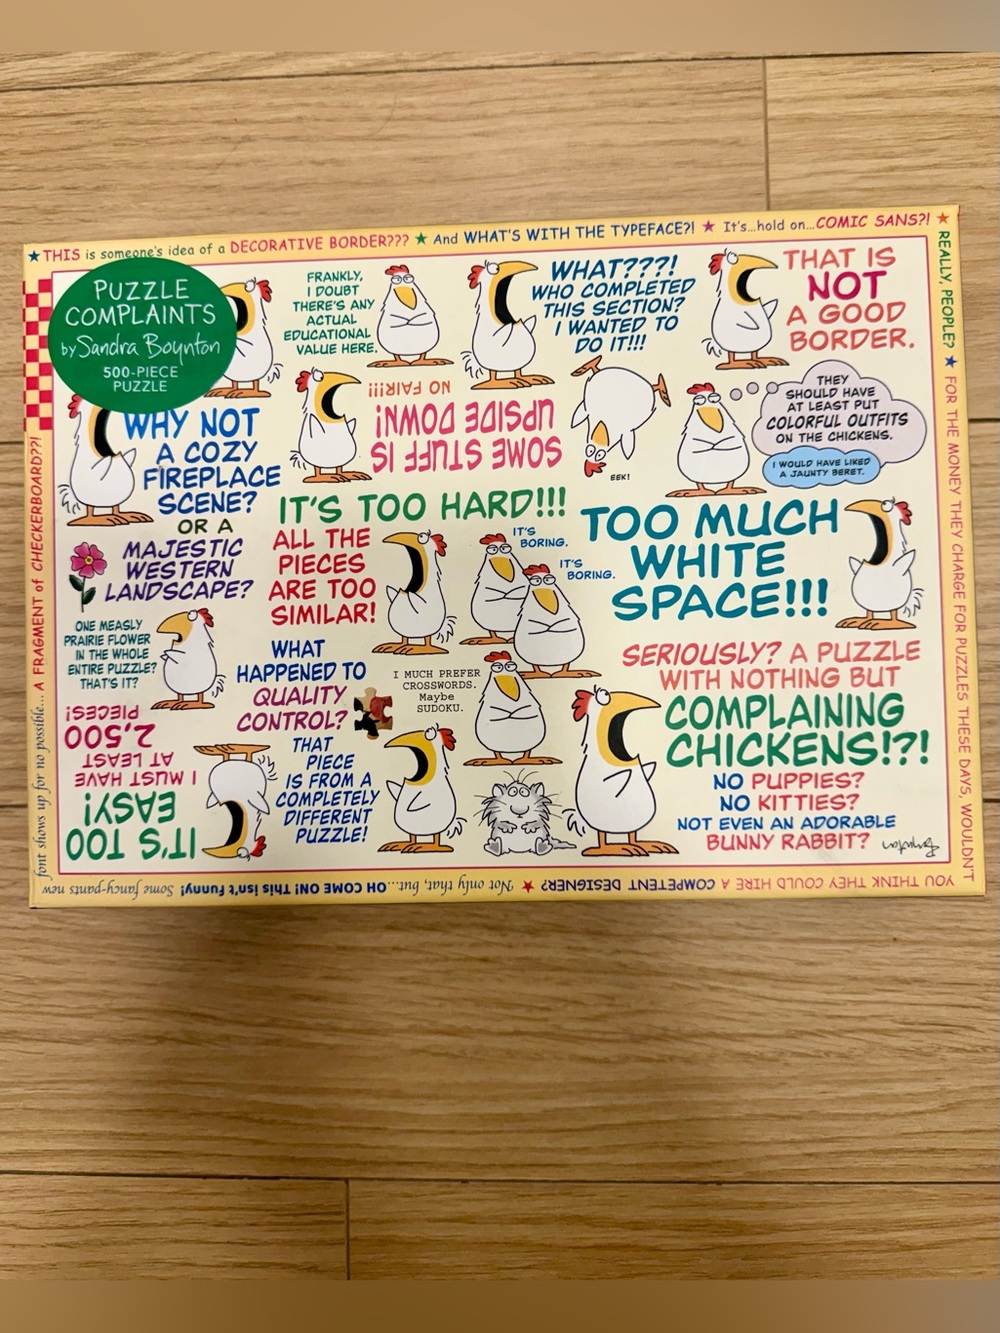 ★ THIS is someone's idea of a DECORATIVE BORDER??? ★ And WHAT'S WITH THE TYPEFACE?! ★ It's...hold on...COMIC SANS?! ★
REALLY, PEOPLE? ★ FOR THE MONEY THEY CHARGE FOR PUZZLES THESE DAYS, WOULDN'T
YOU THINK THEY COULD HIRE A COMPETENT DESIGNER? ★ Not only that, but...OH COME ON! This isn't funny! Some fancy-pants new
font shows up for no possible... A FRAGMENT of CHECKERBOARD??!
PUZZLE
COMPLAINTS
by Sandra Boynton
500-PIECE
PUZZLE
FRANKLY,
I DOUBT
THERE'S ANY
ACTUAL
EDUCATIONAL
VALUE HERE.
WHAT???!
WHO COMPLETED
THIS SECTION?
I WANTED TO
DO IT!!!
THAT IS
NOT
A GOOD
BORDER.
WHY NOT
A COZY
FIREPLACE
SCENE?
OR A
MAJESTIC
WESTERN
LANDSCAPE?
SOME STUFF IS
UPSIDE DOWN!
NO FAIR!!!
EEK!
THEY
SHOULD HAVE
AT LEAST PUT
COLORFUL OUTFITS
ON THE CHICKENS.
I WOULD HAVE LIKED
A JAUNTY BERET.
IT'S TOO HARD!!!
ALL THE
PIECES
ARE TOO
SIMILAR!
IT'S
BORING.
IT'S
BORING.
TOO MUCH
WHITE
SPACE!!!
ONE MEASLY
PRAIRIE FLOWER
IN THE WHOLE
ENTIRE PUZZLE?
THAT'S IT?
WHAT
HAPPENED TO
QUALITY
CONTROL?
I MUCH PREFER
CROSSWORDS.
Maybe
SUDOKU.
SERIOUSLY? A PUZZLE
WITH NOTHING BUT
COMPLAINING
CHICKENS!?!
NO PUPPIES?
NO KITTIES?
NOT EVEN AN ADORABLE
BUNNY RABBIT?
IT'S TOO
EASY!
I MUST HAVE
AT LEAST
2,500
PIECES!
THAT
PIECE
IS FROM A
COMPLETELY
DIFFERENT
PUZZLE!
Boynton